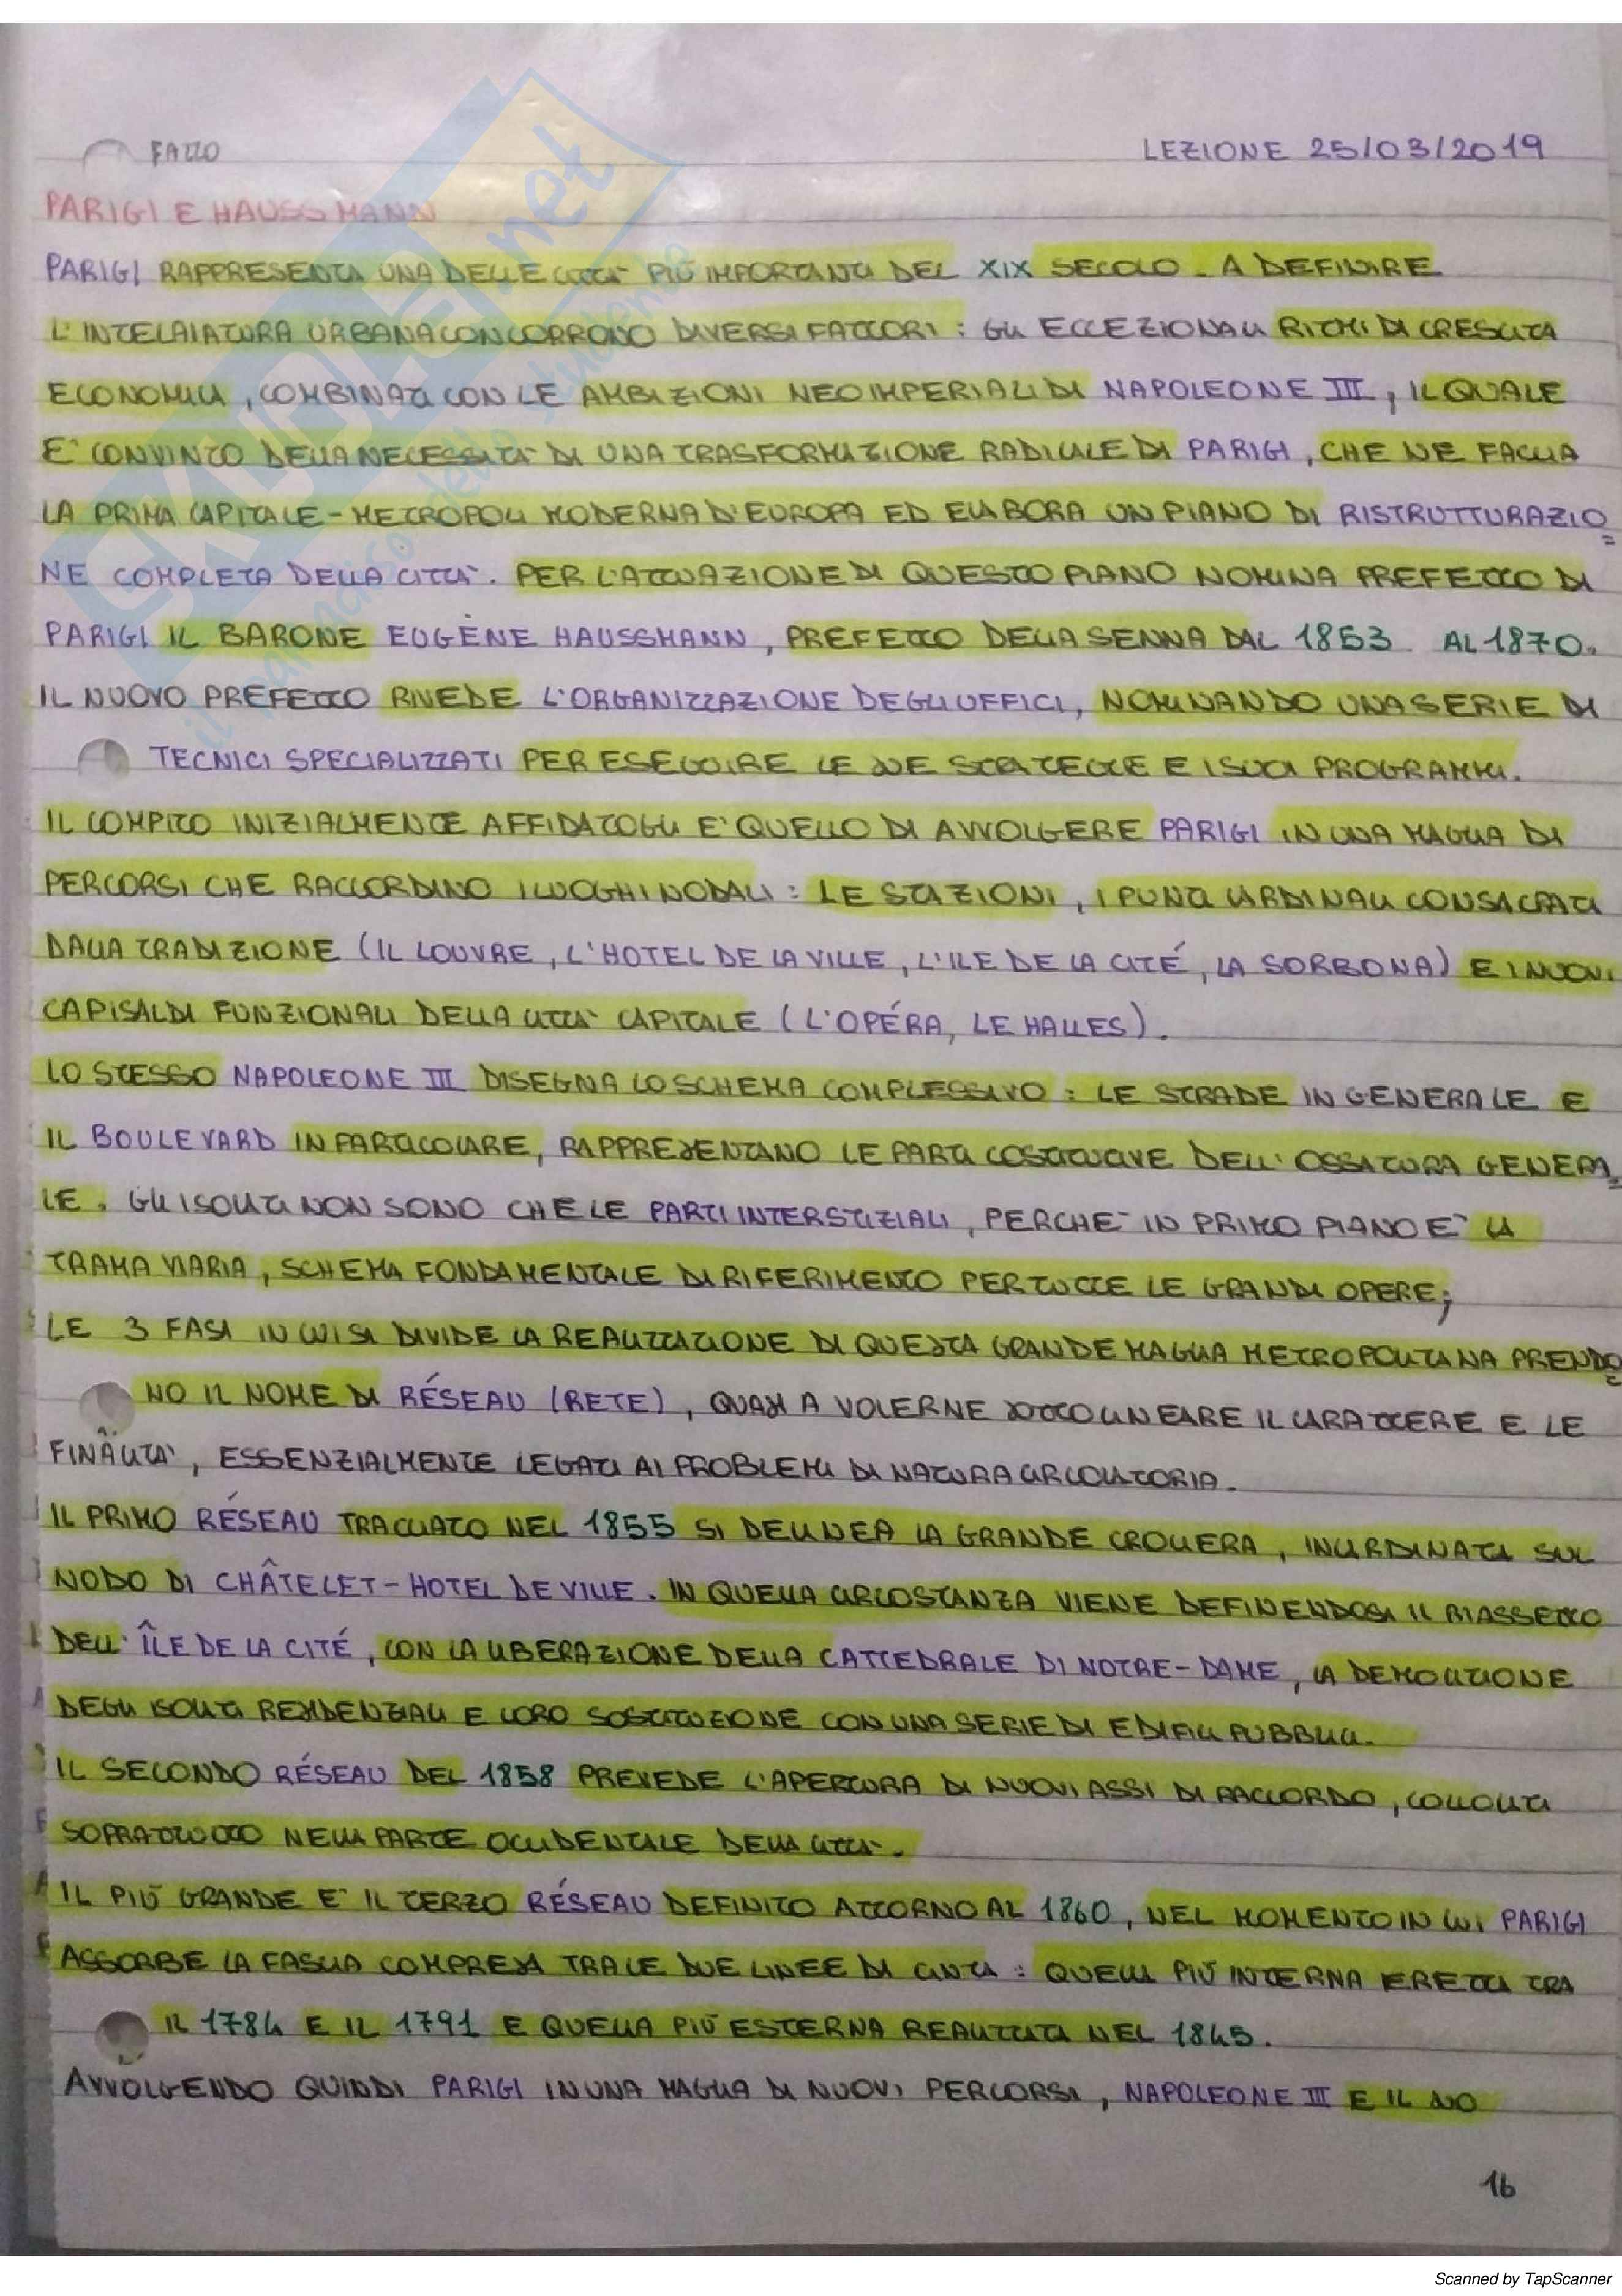 FATTO
LEZIONE 25/03/2019
PARIGI E HAUSSMANN
PARIGI RAPPRESENTA UNA DELLE CITTA' PIÙ IMPORTANTI DEL XIX SECOLO. A DEFINIRE
L'INTELAIATURA URBANA CONCORRONO DIVERSI FATTORI: GLI ECCEZIONALI RITMI DI CRESCITA
ECONOMICA, COMBINATI CON LE AMBIZIONI NEOIMPERIALI DI NAPOLEONE III, IL QUALE
E' CONVINTO DELLA NECESSITA' DI UNA TRASFORMAZIONE RADICALE DI PARIGI, CHE NE FACCIA
LA PRIMA CAPITALE-METROPOLI MODERNA D'EUROPA ED ELABORA UN PIANO DI RISTRUTTURAZIO=
NE COMPLETA DELLA CITTA'. PER L'ATTUAZIONE DI QUESTO PIANO NOMINA PREFETTO DI
PARIGI IL BARONE EUGÈNE HAUSSMANN, PREFETTO DELLA SENNA DAL 1853 AL 1870.
IL NUOVO PREFETTO RIVEDE L'ORGANIZZAZIONE DEGLI UFFICI, NOMINANDO UNA SERIE DI
TECNICI SPECIALIZZATI PER ESEGUIRE LE SUE STRATEGIE E I SUOI PROGRAMMI.
IL COMPITO INIZIALMENTE AFFIDATOGLI E' QUELLO DI AVVOLGERE PARIGI IN UNA MAGLIA DI
PERCORSI CHE RACCORDINO I LUOGHI NODALI: LE STAZIONI, I PUNTI CARDINALI CONSACRATI
DALLA TRADIZIONE (IL LOUVRE, L'HOTEL DE LA VILLE, L'ILE DE LA CITÉ, LA SORBONA) E I NUOVI
CAPISALDI FUNZIONALI DELLA CITTA' CAPITALE (L'OPÉRA, LE HALLES).
LO STESSO NAPOLEONE III DISEGNA LO SCHEMA COMPLESSIVO: LE STRADE IN GENERALE E
IL BOULEVARD IN PARTICOLARE, RAPPRESENTANO LE PARTI COSTITUTIVE DELL'OSSATURA GENERA=
LE. GLI ISOLATI NON SONO CHE LE PARTI INTERSTIZIALI, PERCHE' IN PRIMO PIANO E' LA
TRAMA VIARIA, SCHEMA FONDAMENTALE DI RIFERIMENTO PER TUTTE LE GRANDI OPERE;
LE 3 FASI IN CUI SI DIVIDE LA REALIZZAZIONE DI QUESTA GRANDE MAGLIA METROPOLITANA PRENDO=
NO IL NOME DI RÉSEAU (RETE), QUASI A VOLERNE SOTTOLINEARE IL CARATTERE E LE
FINALITA', ESSENZIALMENTE LEGATI AI PROBLEMI DI NATURA CIRCOLATORIA.
IL PRIMO RÉSEAU TRACCIATO NEL 1855 SI DELINEA LA GRANDE CROCIERA, INCARDINATA SUL
NODO DI CHÂTELET-HOTEL DE VILLE. IN QUELLA CIRCOSTANZA VIENE DEFINENDOSI IL RIASSETTO
DELL'ÎLE DE LA CITÉ, CON LA LIBERAZIONE DELLA CATTEDRALE DI NOTRE-DAME, LA DEMOLIZIONE
DEGLI ISOLATI RESIDENZIALI E LORO SOSTITUZIONE CON UNA SERIE DI EDIFICI PUBBLICI.
IL SECONDO RÉSEAU DEL 1858 PREVEDE L'APERTURA DI NUOVI ASSI DI RACCORDO, COLLOCATI
SOPRATTUTTO NELLA PARTE OCCIDENTALE DELLA CITTA'.
IL PIÙ GRANDE E' IL TERZO RÉSEAU DEFINITO ATTORNO AL 1860, NEL MOMENTO IN CUI PARIGI
ASSORBE LA FASCIA COMPRESA TRA LE DUE LINEE DI CINTA: QUELLA PIÙ INTERNA ERETTA TRA
IL 1784 E IL 1791 E QUELLA PIÙ ESTERNA REALIZZATA NEL 1845.
AVVOLGENDO QUINDI PARIGI IN UNA MAGLIA DI NUOVI PERCORSI, NAPOLEONE III E IL SUO
16
Scanned by TapScanner